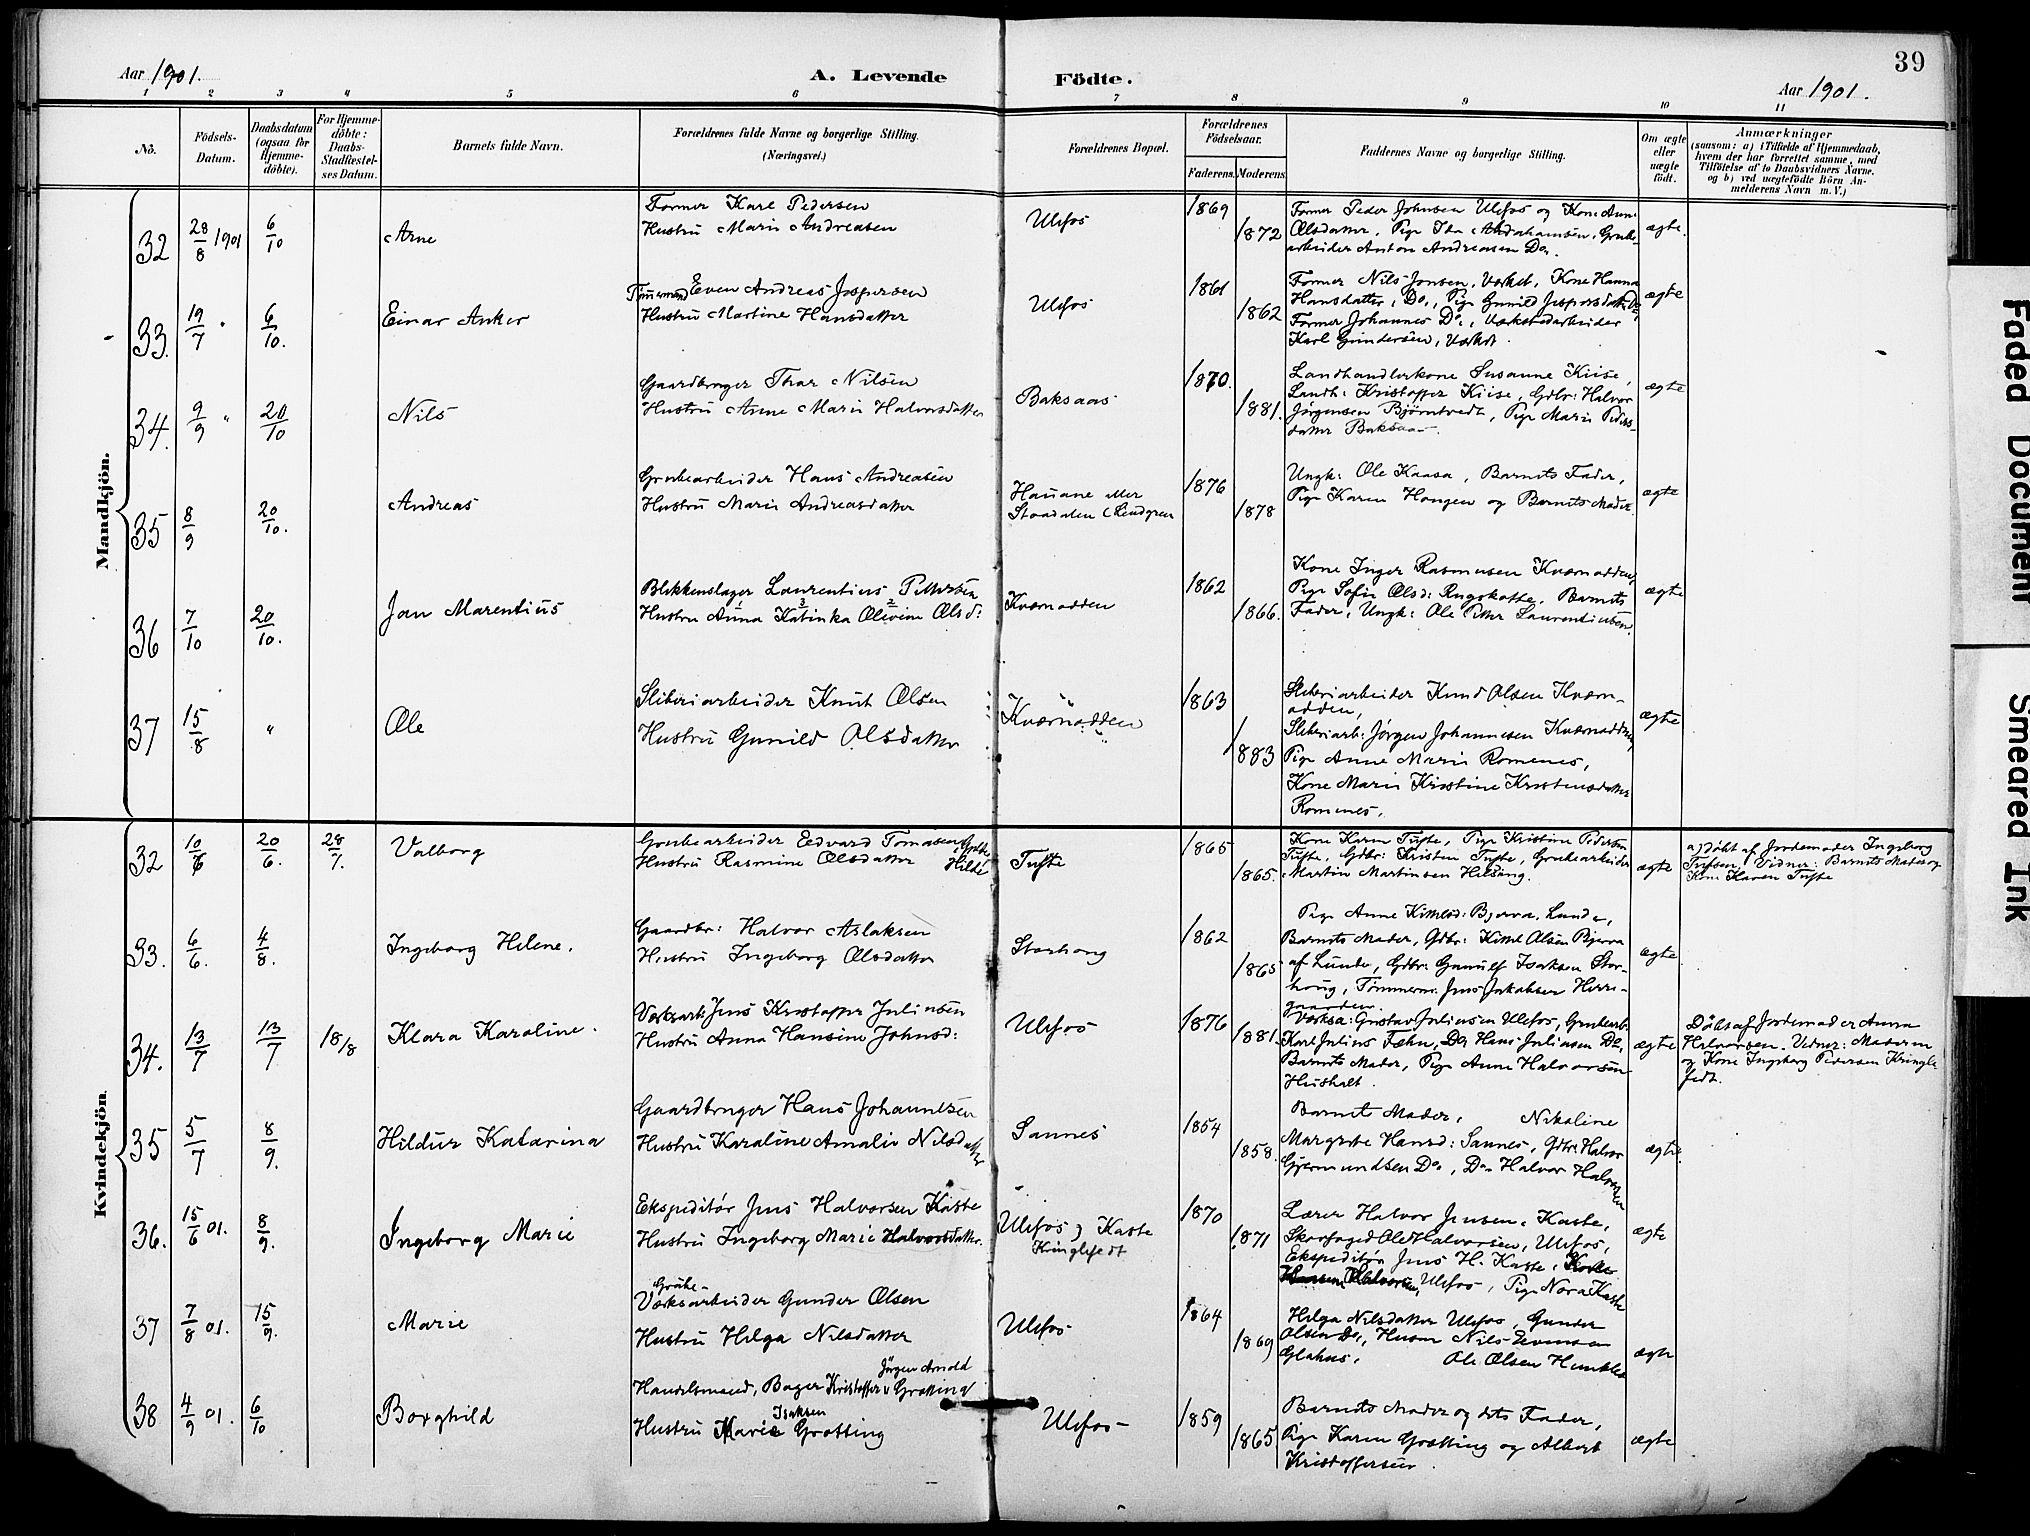 39
Aar 1901.
A. Levende Födte.
Aar 1901.
1 2 3 4 5 6 7 8 9 10 11
No.
Födsels-Datum.
Daabsdatum (ogsaa for Hjemmedöbte).
For Hjemmedöbte: Daabs-Stadfestelses Datum.
Barnets fulde Navn.
Forældrenes fulde Navne og borgerlige Stilling.
(Næringsvei.)
Forældrenes Bopæl.
Forældrenes Födselsaar.
Faderens. Moderens.
Faddernes Navne og borgerlige Stilling.
Om ægte eller uægte födt.
Anmærkninger
(saasom: a) i Tilfælde af Hjemmedaab, hvem der har forrettet samme, med Tilföielse af to Daabsvidners Navne, og b) ved uægtefödte Börn Anmelderens Navn m. V.)
Mandkjön.
32 28/8 1901 6/10 Arne
Former Karl Pedersen
Hustru Marie Andreasen
Ulefos 1869 1872
Former Peder Johnsen Ulefos og Kone Anne
Olsdatter, Pige Ida Abrahamsen, Grube-
arbeider Anton Andreasen Do.
ægte.
33. 19/7 " 6/10. Einar Anker
Tømmermand Even Andreas Jespersen
Hustru Martine Hansdatter
Ulefos 1861 1862
Former Nils Jonsen, Værket, Kone Hanna
Hansdatter, Do., Pige Gunild Jespersdatter
Former Johannes Do., Værkstedarbeider
Karl Gundersen, Værket.
ægte
34. 9/9 " 20/10 Nils
Gaardbruger Thor Nilsen
Hustru Anne Marie Halvorsdatter
Baksaas 1870. 1881.
Landhandlerkone Susanne Kiise,
Landh: Kristoffer Kiise, Gdbr: Halvor
Jørgensen Bjørntvedt, Pige Marie Peders-
datter Baksaas.
ægte
35 8/9 20/10. Andreas
Grubearbeider Hans Andreasen
Hustru Marie Andreasdatter
Hauane eller
Staadalen
1876 1878
Ungk: Ole Kaasa, Barnets Fader,
Pige Karen Haugen og Barnets Moder.
ægte
36 7/10 20/10. Jan Marentius
Blikkenslager Laurentius Pettersen
Hustru Anna Katinka Olevine Olsd:
Kværnodden 1862 1866.
Kone Inger Rasmussen Kværnodden,
Pige Sofie Olsd: Rugskotte, Barnets
Fader, Ungk: Ole Petter Laurentiusen.
ægte
37 15/8 " Ole
Sliberiarbeider Knut Olsen
Hustru Gunild Olsdatter
Kværnodden 1863 1883
Sliberiarbeider Knud Olsen Kværn-
odden,
Sliberiarb: Jørgen Johannesen Kværnodden
Pige Anne Marie Romenes,
Kone Marie Kristine Kristensdatter
Romenes.
ægte
Kvindekjön.
32 10/6 20/6. 28/7. Valborg
Grubearbeider Edvard Tomasen Tufte
Hustru Rasmine Olsdatter
Tufte 1865 1865.
Kone Karen Tufte, Pige Kristine Pedersen
Tufte, Gdbr: Kristen Tufte, Grubearbeider
Martin Martinsen Helsing.
ægte
a) Døbt af Jordemoder Ingeborg
Tufsen, Vidner: Barnets Moder og
Kone Karen Tufte
33. 6/6. 4/8. Ingeborg Helene.
Gaardbr: Halvor Aslaksen
Hustru Ingeborg Olsdatter
Storhong 1862 1865
Pige Anne Kittelsd: Bjerva, Lunde,
Barnets Moder, Gdbr: Kittel Olsen Bjerva
af Lunde, Gdbr: Gunulf Isaksen Stor-
houg, Tømmerm. Jens Jakobsen Herre-
gaarden.
ægte
34. 13/7 13/7 18/8 Klara Karoline.
Værksarb: Jens Kristoffer Juliusen
Hustru Anna Hansine Johnsd:
Ulefos 1876 1881.
Værksa: Gustav Juliusen Ulefos, Grubearb.
Karl Julius Fæhn, Do, Hans Juliusen Do,
Barnets Moder, Pige Anne Halvorsen
Husholt.
ægte
Døbt af Jordemoder Anna
Halvorsen. Vidner: Moderen
og Kone Ingeborg Pedersen Kringle-
fedt.
35 5/7 8/9. Hildur Katarina
Gaardbruger Hans Johannesen
Hustru Karoline Amalie Nilsdatter
Sannes 1854 1858.
Barnets Moder, Nikoline
Margrete Hansd: Sannes, Gdbr: Halvor
Gjermundsen Do., Do. Halvor Halvorsen
ægte.
36. 15/6 01. 8/9. Ingeborg Marie
Ekspeditør Jens Halvorsen Kaste
Hustru Ingeborg Marie Halvorsdatter.
Ulefos, Kaste
Kringlefedt
1870 1871
Lærer Halvor Jensen, Kaste,
Skovfoged Ole Halvorsen, Ulefos,
Ekspeditør Jens H. Kaste,
Ulefos, Pige Nora Kaste
ægte
37 7/8 01. 15/9. Marie
Grube-
Værksarbeider Gunder Olsen
Hustru Helga Nilsdatter
Ulefos 1864 1869
Helga Nilsdatter Ulefos, Gunder
Olsen Do., Husm Nils Evensen
Glahus, Ole Olsen
ægte
38 4/9 01. 6/10 Borghild
Jörgen Arnold
Handelsmand, Bager Kristoffer Grotting
Isaksen
Hustru Marie Grotting
Ulefos 1859 1865
Barnets Moder og dets Fader,
Pige Karen Grotting og Albert
Kristoffersen.
ægte
Faded Document
Smeared Ink